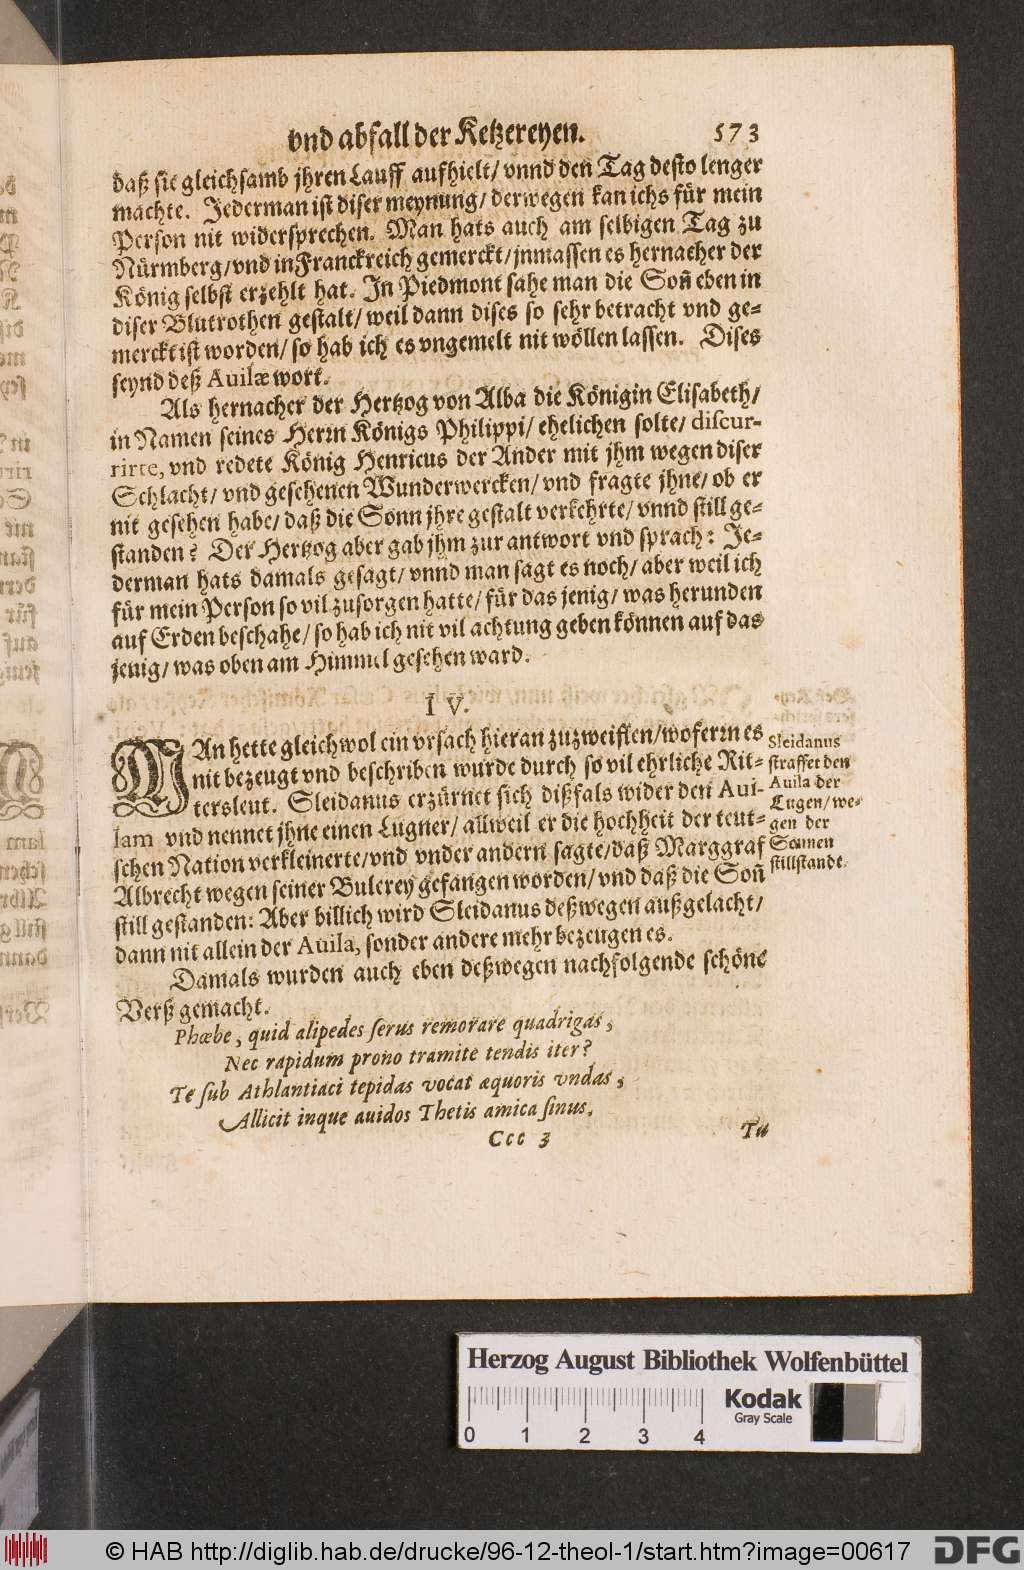 vnd abfall der Ketzereyen. 573
daß sie gleichsamb jhren Lauff aufhielt/ vnnd den Tag desto lenger
machte. Jederman ist diser meynung/ derwegen kan ichs für mein
Person nit widersprechen. Man hats auch am selbigen Tag zu
Nürmberg/ vnd in Franckreich gemerckt/ jnmassen es hernacher der
König selbst erzehlt hat. In Piedmont sahe man die Soñ eben in
diser Blutrothen gestalt/ weil dann dises so sehr betracht vnd ge-
merckt ist worden/ so hab ich es vngemelt nit wöllen lassen. Dises
seynd deß Auilæ wort.
Als hernacher der Hertzog von Alba die Königin Elisabeth/
in Namen seines Herrn Königs Philippi/ ehelichen solte/ discur-
rirte, vnd redete König Henricus der Ander mit jhm wegen diser
Schlacht/ vnd gesehenen Wunderwercken/ vnd fragte jhne/ ob er
nit gesehen habe/ daß die Sonn jhre gestalt verkehrte/ vnnd still ge-
standen? Der Hertzog aber gab jhm zur antwort vnd sprach: Je-
derman hats damals gesagt/ vnnd man sagt es noch/ aber weil ich
für mein Person so vil zusorgen hatte/ für das jenig/ was herunden
auf Erden beschahe/ so hab ich nit vil achtung geben können auf das
jenig/ was oben am Himmel gesehen ward.
IV.
MAn hette gleichwol ein vrsach hieran zuzweiflen/ wofern es
nit bezeugt vnd beschriben wurde durch so vil ehrliche Rit-
tersleut. Sleidanus erzürnet sich dißfals wider den Aui-
lam vnd nennet jhne einen Lugner/ allweil er die hochheit der teut-
schen Nation verkleinerte/ vnd vnder andern sagte/ daß Marggraf
Albrecht wegen seiner Bulerey gefangen worden/ vnd daß die Soñ
still gestanden: Aber billich wird Sleidanus deßwegen außgelacht/
dann nit allein der Auila, sonder andere mehr bezeugen es.
Sleidanus
straffet den
Auila der
Lugen/ we-
gen der
Sonnen
stillstande.
Damals wurden auch eben deßwegen nachfolgende schöne
Verß gemacht.
Phœbe, quid alipedes serus remorare quadrigas,
Nec rapidum prono tramite tendis iter?
Te sub Athlantiaci tepidas vocat æquoris vndas,
Allicit inque auidos Thetis amica sinus.
Ccc 3 Tu
Herzog August Bibliothek Wolfenbüttel
Kodak
Gray Scale
0 1 2 3 4
© HAB http://diglib.hab.de/drucke/96-12-theol-1/start.htm?image=00617 DFG